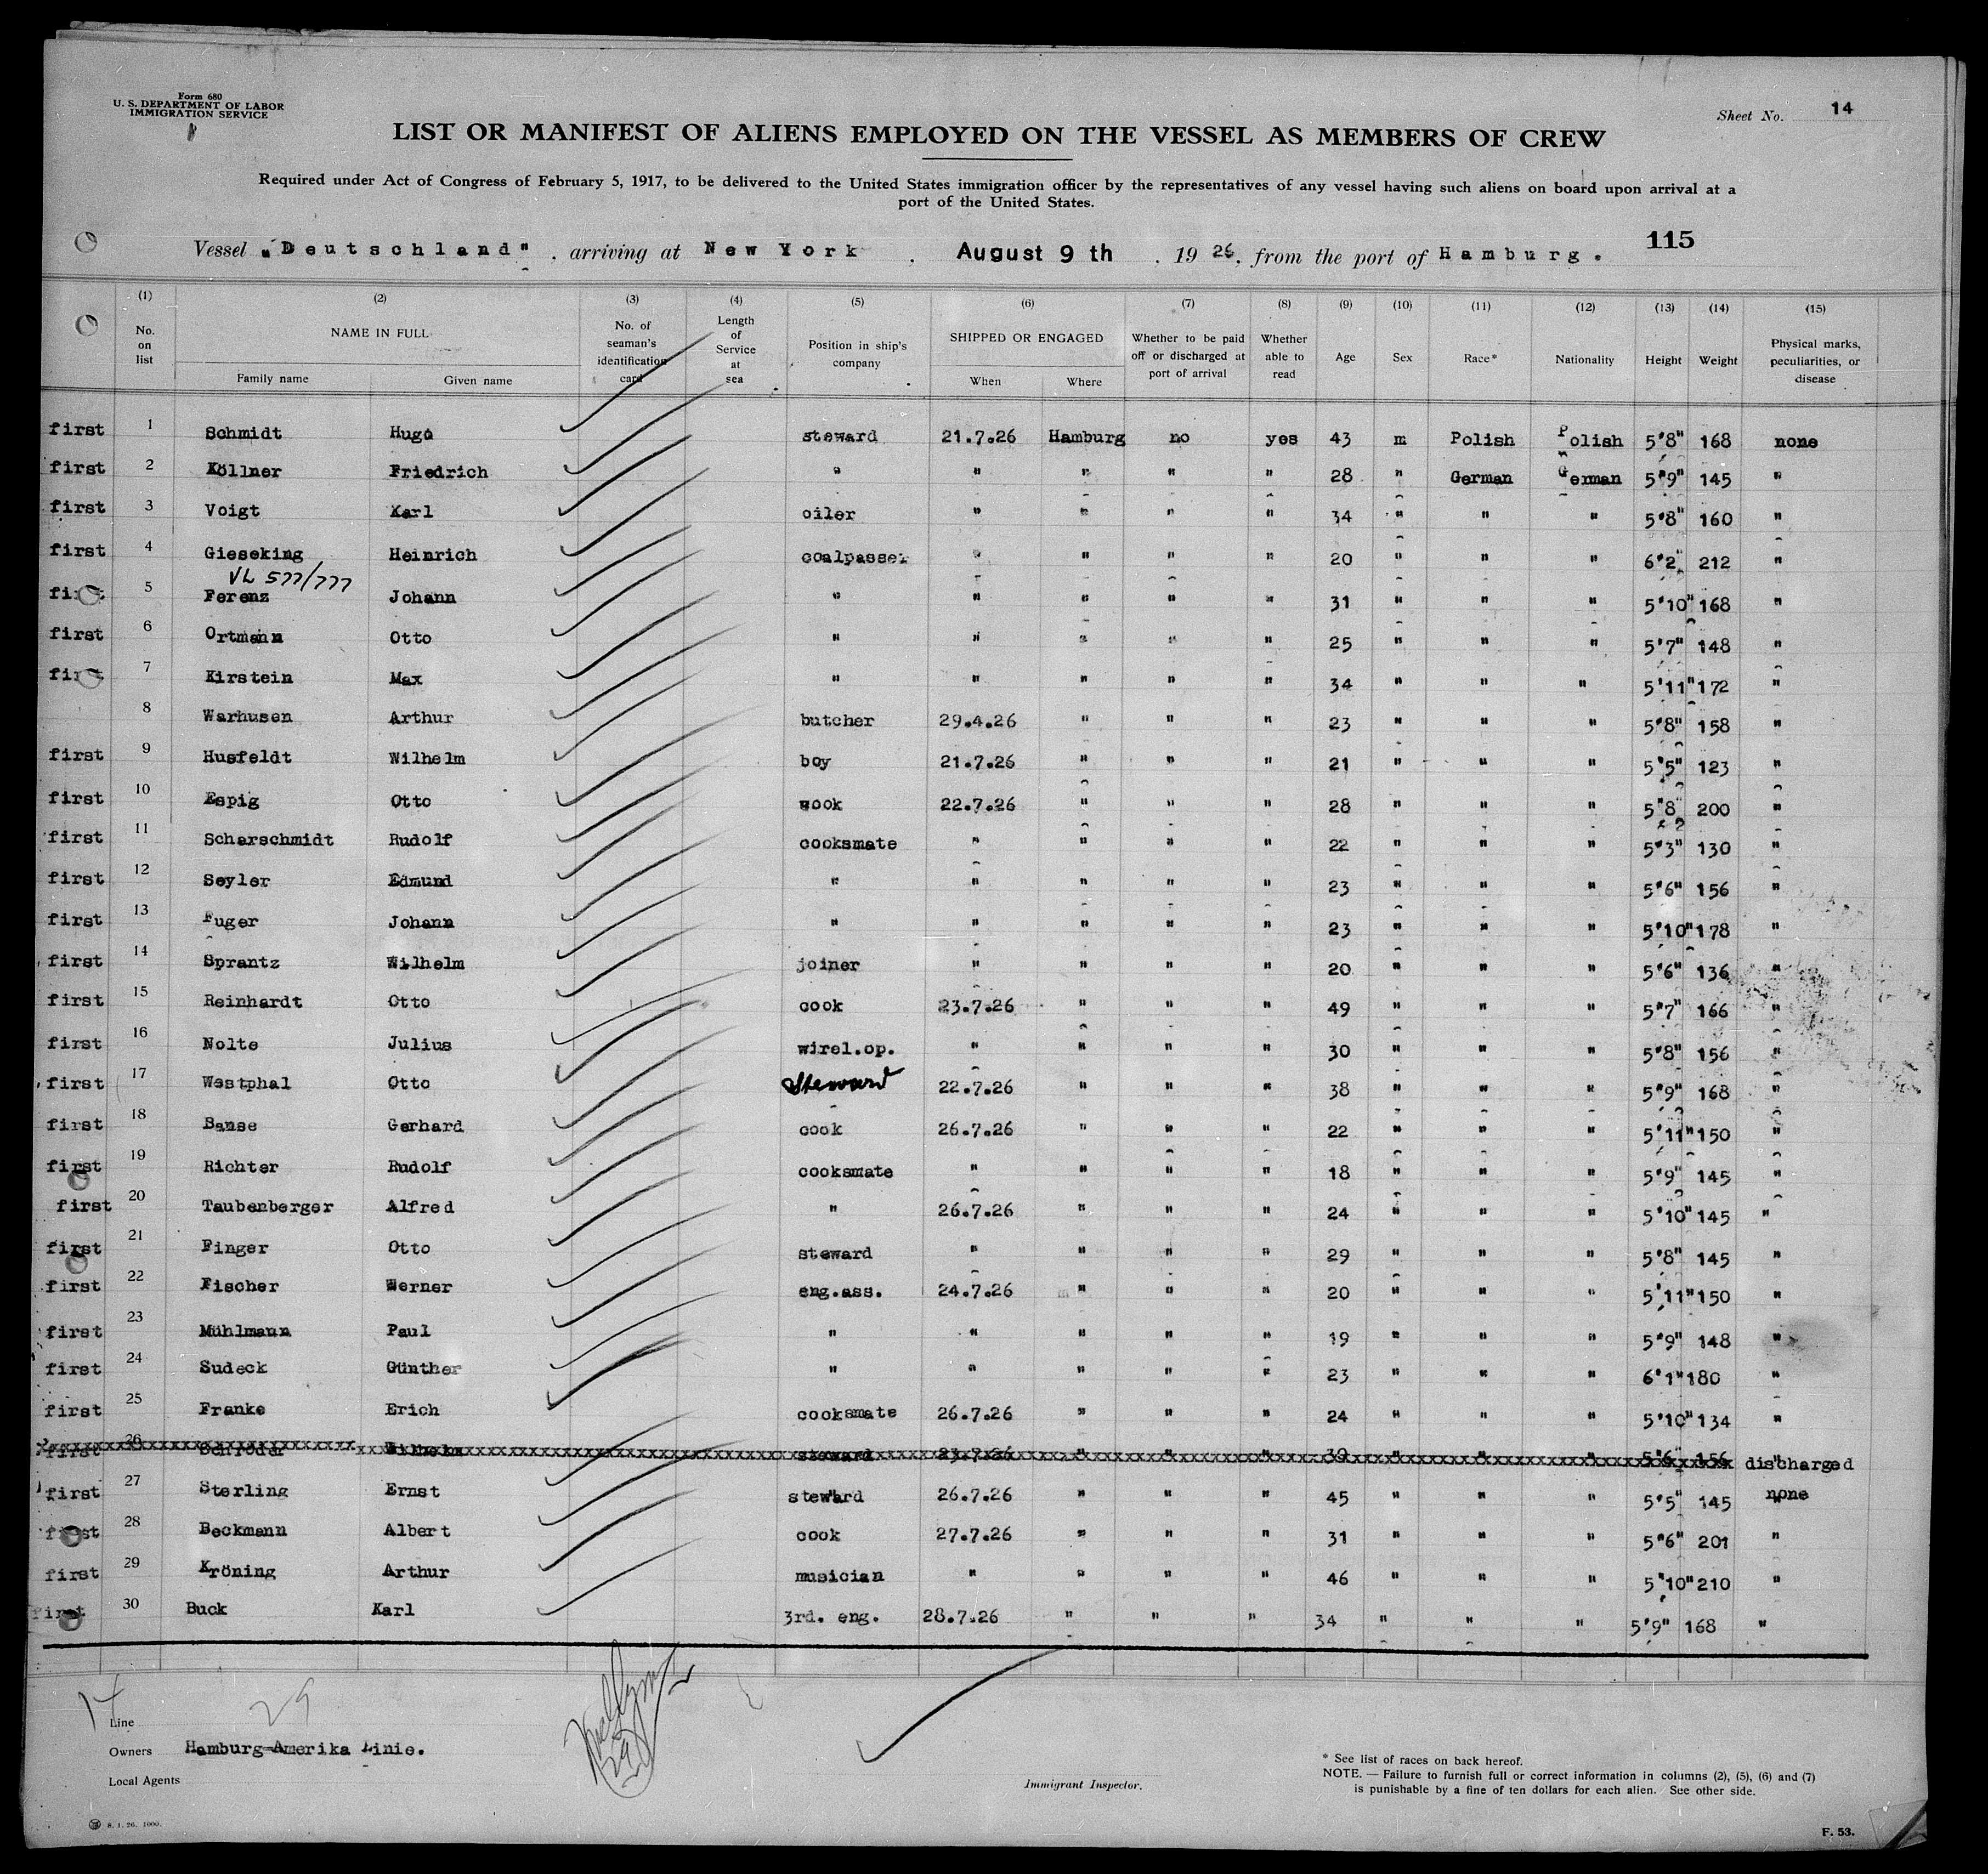 Form 680
U. S. DEPARTMENT OF LABOR
IMMIGRATION SERVICE
Sheet No. 14
LIST OR MANIFEST OF ALIENS EMPLOYED ON THE VESSEL AS MEMBERS OF CREW
Required under Act of Congress of February 5, 1917, to be delivered to the United States immigration officer by the representatives of any vessel having such aliens on board upon arrival at a
port of the United States.
115
Vessel "Deutschland", arriving at New York, August 9 th, 1926, from the port of Hamburg.
(1) (2) (3) (4) (5) (6) (7) (8) (9) (10) (11) (12) (13) (14) (15)
No. on list NAME IN FULL Family name Given name No. of seaman's identification card Length of Service at sea Position in ship's company SHIPPED OR ENGAGED When Where Whether to be paid off or discharged at port of arrival Whether able to read Age Sex Race* Nationality Height Weight Physical marks, peculiarities, or disease
first 1 Schmidt Hugo steward 21.7.26 Hamburg no yes 43 m Polish Polish 5'8" 168 none
first 2 Köllner Friedrich " " " " " 28 " German German 5'9" 145 "
first 3 Voigt Karl oiler " " " " 34 " " " 5'8" 160 "
first 4 Gieseking Heinrich coalpasser " " " " 20 " " " 6'2" 212 "
VL 577/777
first 5 Ferenz Johann " " " " " 31 " " " 5'10" 168 "
first 6 Ortmann Otto " " " " " 25 " " " 5'7" 148 "
first 7 Kirstein Max " " " " " 34 " " " 5'11" 172 "
8 Warhusen Arthur butcher 29.4.26 " " " 23 " " " 5'8" 158 "
first 9 Husfeldt Wilhelm boy 21.7.26 " " " 21 " " " 5'5" 123 "
first 10 Espig Otto cook 22.7.26 " " " 28 " " " 5'8" 200 "
first 11 Scharschmidt Rudolf cooksmate " " " " 22 " " " 5'3" 130 "
first 12 Seyler Edmund " " " " " 23 " " " 5'6" 156 "
first 13 Fuger Johann " " " " " 23 " " " 5'10" 178 "
first 14 Sprantz Wilhelm joiner " " " " 20 " " " 5'6" 136 "
first 15 Reinhardt Otto cook 23.7.26 " " " 49 " " " 5'7" 166 "
first 16 Nolte Julius wirel.op. " " " " 30 " " " 5'8" 156 "
first 17 Westphal Otto Steward 22.7.26 " " " 38 " " " 5'9" 168 "
first 18 Banse Gerhard cook 26.7.26 " " " 22 " " " 5'11" 150 "
first 19 Richter Rudolf cooksmate " " " " 18 " " " 5'9" 145 "
first 20 Taubenberger Alfred " 26.7.26 " " " 24 " " " 5'10" 145 "
first 21 Finger Otto steward " " " " 29 " " " 5'8" 145 "
first 22 Fischer Werner eng.ass. 24.7.26 " " " 20 " " " 5'11" 150 "
first 23 Mühlmann Paul " " " " " 19 " " " 5'9" 148 "
first 24 Sudeck Günther " " " " " 23 " " " 6'1" 180 "
first 25 Franke Erich cooksmate 26.7.26 " " " 24 " " " 5'10" 134 "
first 26 Schröder Wilhelm steward 23.7.26 " " " 39 " " " 5'6" 156 " discharged
first 27 Sterling Ernst steward 26.7.26 " " " 45 " " " 5'5" 145 none
first 28 Beckmann Albert cook 27.7.26 " " " 31 " " " 5'6" 201 "
first 29 Kröning Arthur musician " " " " 46 " " " 5'10" 210 "
first 30 Buck Karl 3rd. eng. 28.7.26 " " " 34 " " " 5'9" 168 "
14 29
Line
Owners Hamburg-Amerika Linie.
Local Agents
Immigrant Inspector.
* See list of races on back hereof.
NOTE. — Failure to furnish full or correct information in columns (2), (5), (6) and (7)
is punishable by a fine of ten dollars for each alien. See other side.
8. 1. 26. 1000.
F. 53.